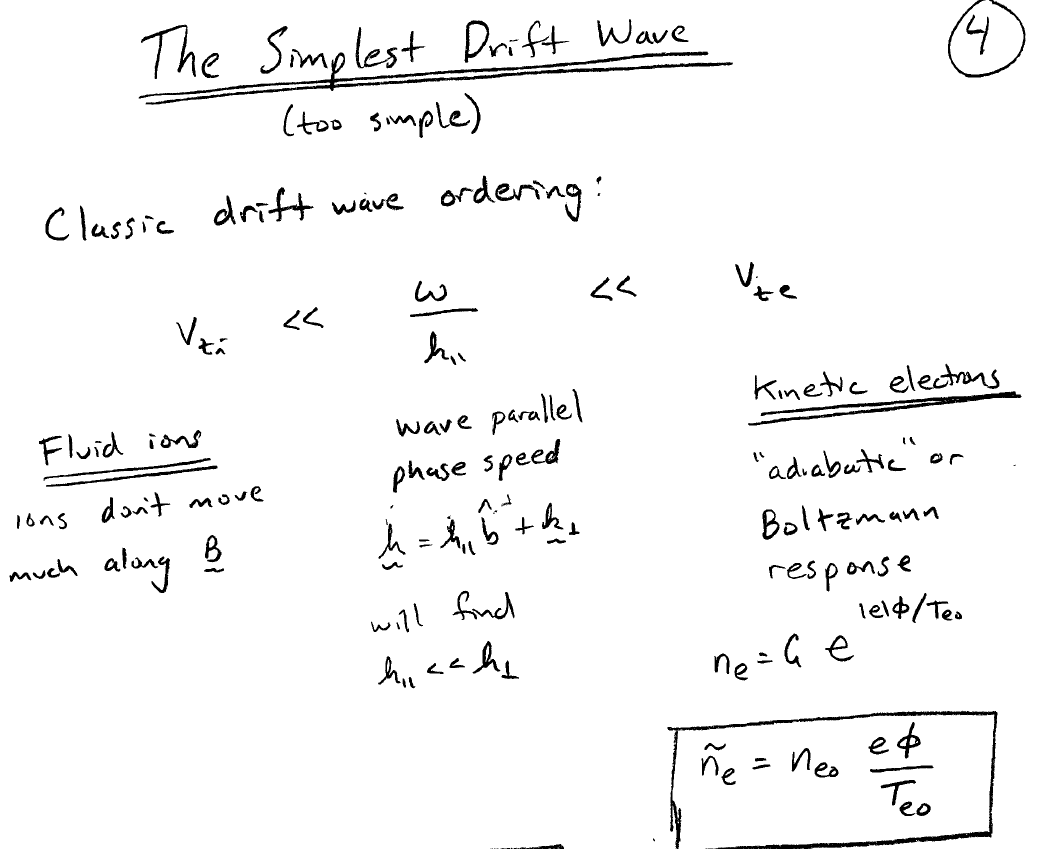 The Simplest Drift Wave
4
(too simple)
Classic drift wave ordering:
V_ti << ω/k_∥ << V_te
Fluid ions
ions don't move
much along B
wave parallel
phase speed
k = k_∥ b̂ + k_⊥
will find
k_∥ << k_⊥
Kinetic electrons
"adiabatic" or
Boltzmann
response
n_e = C e^{|e|ϕ/T_eo}
ñ_e = n_eo eϕ/T_eo